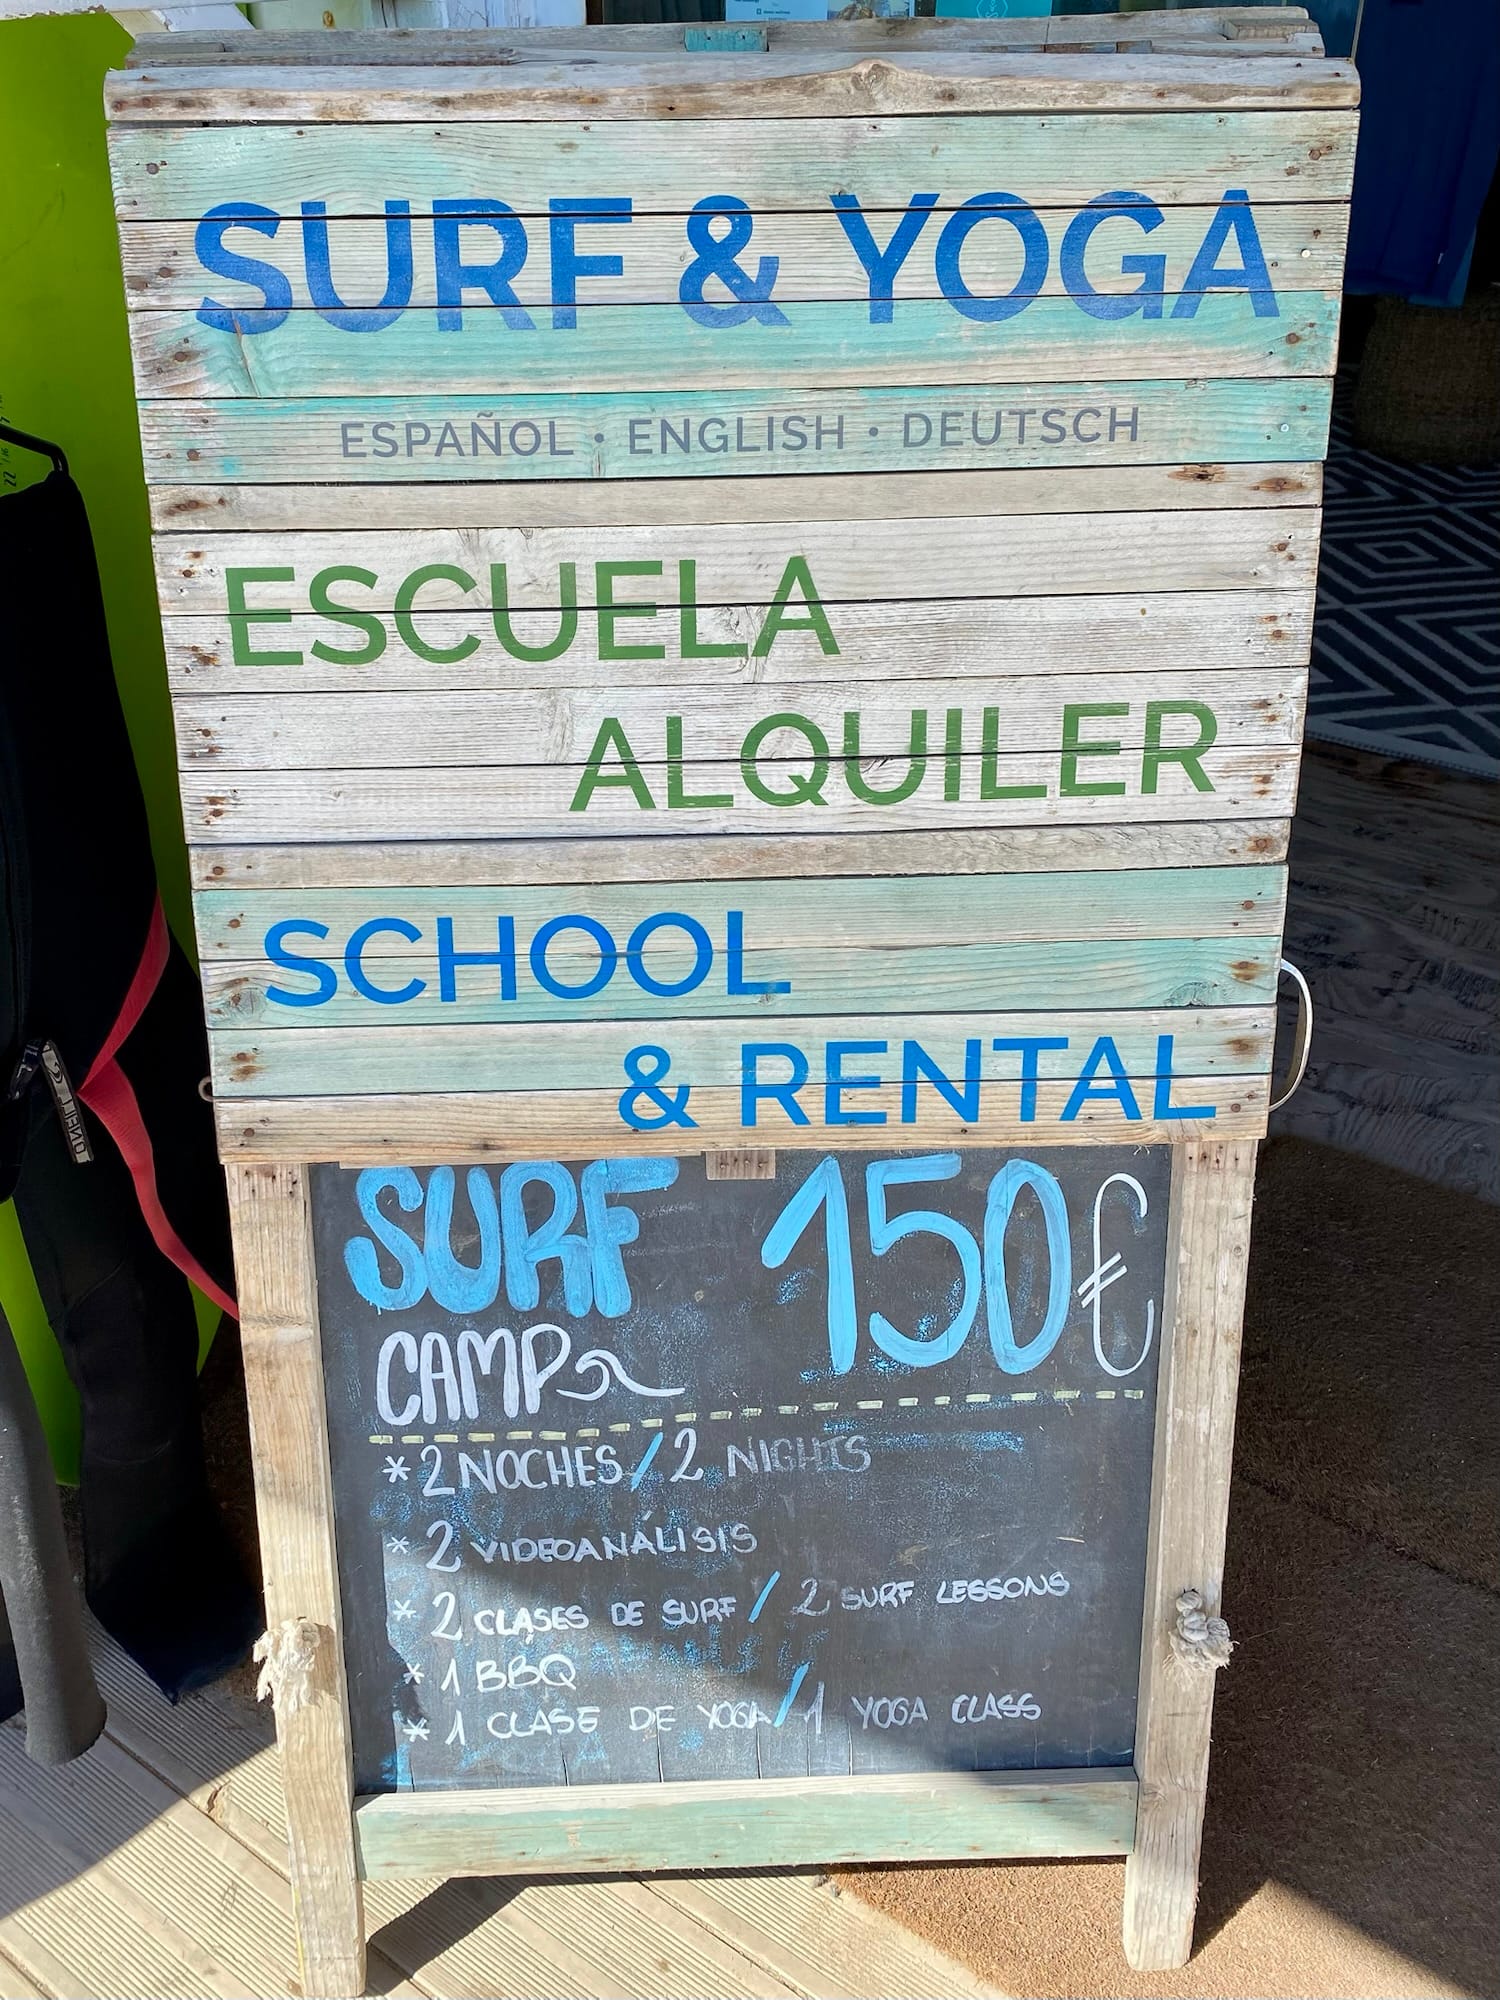 SURF & YOGA
ESPAÑOL · ENGLISH · DEUTSCH
ESCUELA
ALQUILER
SCHOOL
& RENTAL
SURF 150€
CAMP
* 2 NOCHES / 2 NIGHTS
* 2 VIDEOANÁLISIS
* 2 CLASES DE SURF / 2 SURF LESSONS
* 1 BBQ
* 1 CLASE DE YOGA / 1 YOGA CLASS
O'NEILL